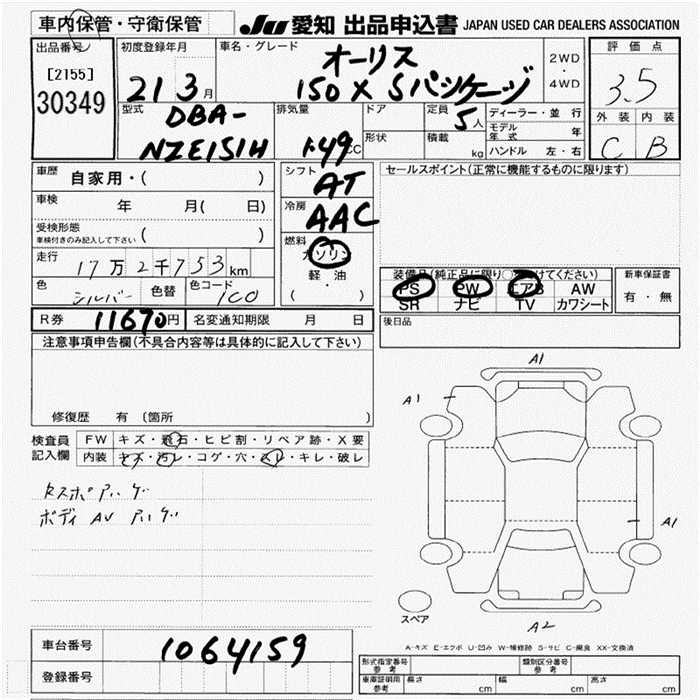 車内保管・守衛保管
JU 愛知 出品申込書 JAPAN USED CAR DEALERS ASSOCIATION
出品番号
[2155]
30349
初度登録年月
21 3月
車名・グレード
オーリス
150 X Sパッケージ
2WD
・
4WD
評価点
3.5
外装 内装
C B
型式
DBA-
NZE151H
排気量
1.49 CC
ドア
形状
定員 5人
積載 kg
ディーラー・並行
モデル年式 年
ハンドル 左・右
車歴 自家用・( )
車検 年 月( 日)
受検形態
車検付きのみ記入して下さい ( )
走行 17万2千753km
色 シルバー 色替 色コード 1C0
シフト AT
冷房 AAC
燃料
ガソリン
軽・油
( ・ )
セールスポイント(正常に機能するものに限ります)
装備品(純正品に限り○をつけてください)
PS PW エアB AW
SR ナビ TV カワシート
新車保証書
有・無
R券 11670円 名変通知期限 月 日
後日品
注意事項申告欄(不具合内容等は具体的に記入して下さい)
修復歴 有 〔箇所 〕
検査員
記入欄
FW キズ・飛石・ヒビ割・リペア跡・X要
内装 キズ・汚レ・コゲ・穴・スレ・キレ・破レ
ボディ AU アハゲ
A1
A1
A1
A2
スペア
A-キズ E-エクボ U-凹み W-補修跡 S-サビ C-腐食 XX-交換済
車台番号 1064159
登録番号
形式指定番号
参考
類別区分番号
参考
車庫証明用
参考
長さ cm 幅 cm 高さ cm